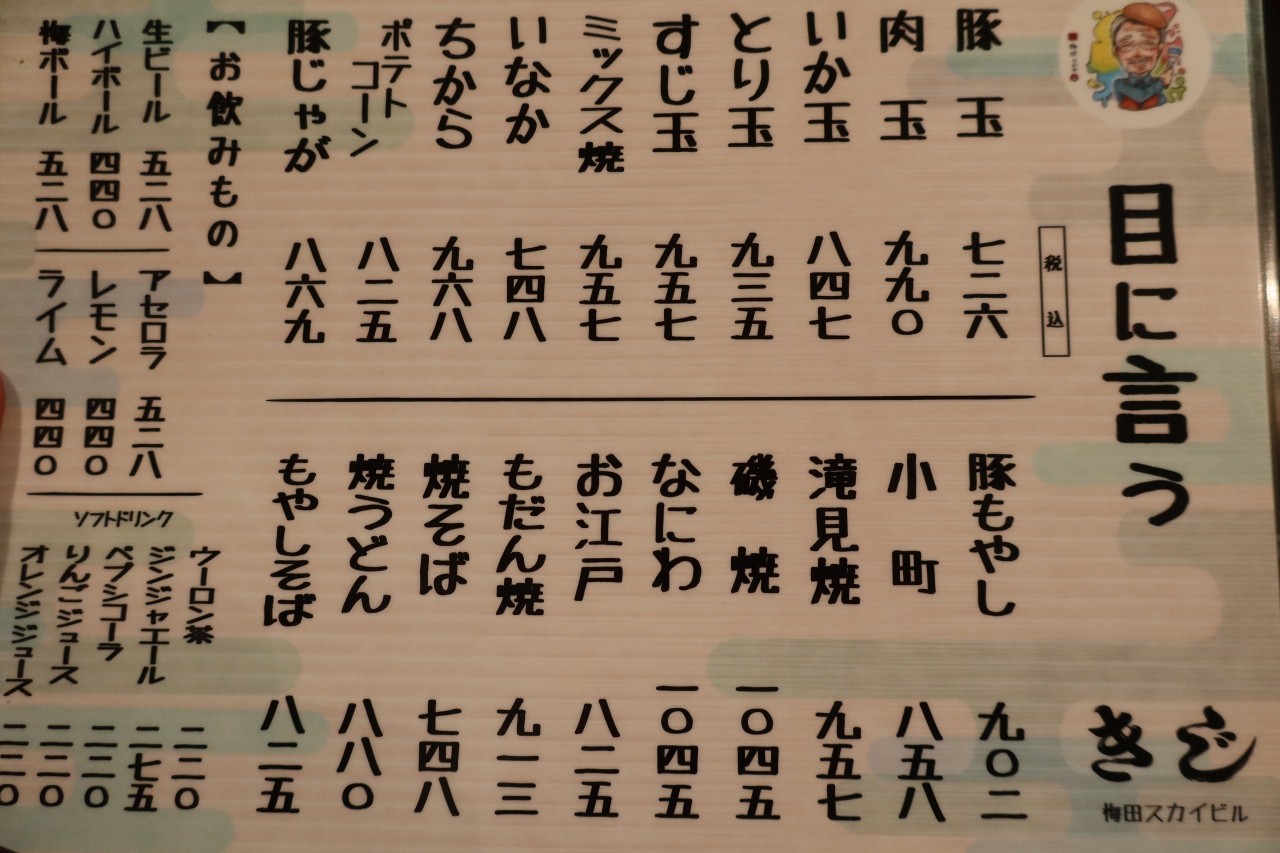 目に言う
きじ
梅田スカイビル
税込
豚玉 七二六
肉玉 九九〇
いか玉 八四七
とり玉 九三五
すじ玉 九五七
ミックス焼 九五七
いなか 七四八
ちから 九六八
ポテトコーン 八二五
豚じゃが 八六九
豚もやし 九〇二
小町 八五八
滝見焼 九五七
磯焼 一〇四五
なにわ 一〇四五
お江戸 八二五
もだん焼 九一三
焼そば 七四八
焼うどん 八八〇
もやしそば 八二五
【お飲みもの】
生ビール 五二八
ハイボール 四四〇
梅ボール 五二八
アセロラ 五二八
レモン 四四〇
ライム 四四〇
ソフトドリンク
ウーロン茶 二二〇
ジンジャエール 二七五
ペプシコーラ 二二〇
りんごジュース 二二〇
オレンジジュース 二二〇